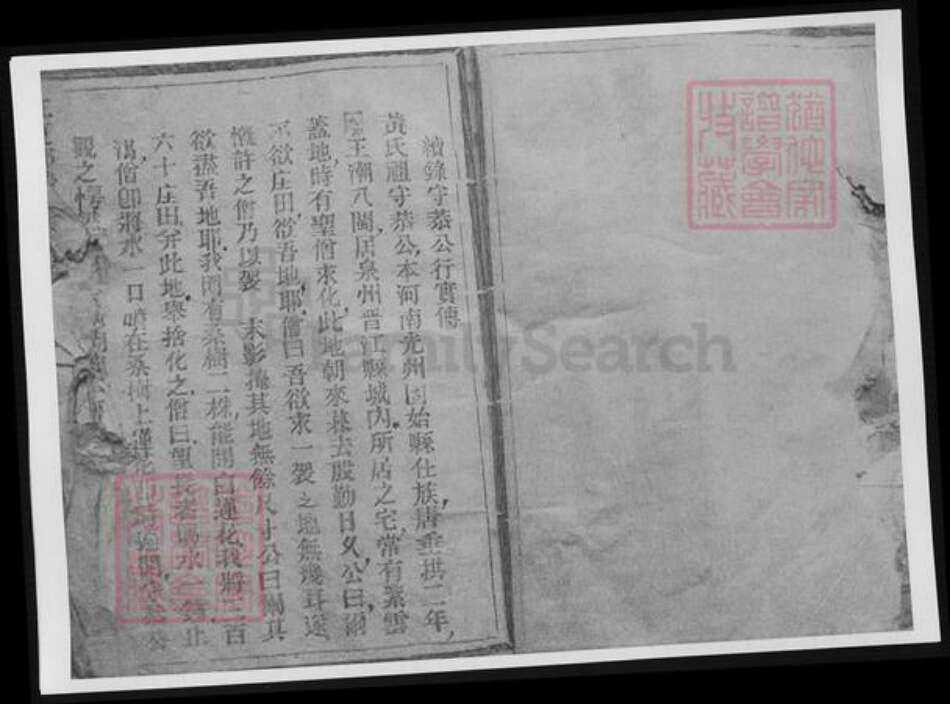 續錄守恭公行實傳
黃氏祖守恭公,本河南光州固始縣仕族,唐垂拱二年,
王潮入閩,居泉州晉江縣城內所居之宅,常有紫雲
蓋地,時有聖僧求化,此地朝來暮去殷勤日久,公曰爾
不欲庄田,欲吾地耶,僧曰吾欲求一袈之地無幾耳遂
慨許之,僧乃以袈 求影掩其地無餘尺寸公曰爾其
欲盡吾地耶,我園有桑樹二株,能開白蓮花,我將三百
六十庄田,弁此地舉捨化之,僧曰望長者賜水一 止
渴,僧即將水一口噴在桑樹上蓮花 公
觀之
FamilySearch
譜學會